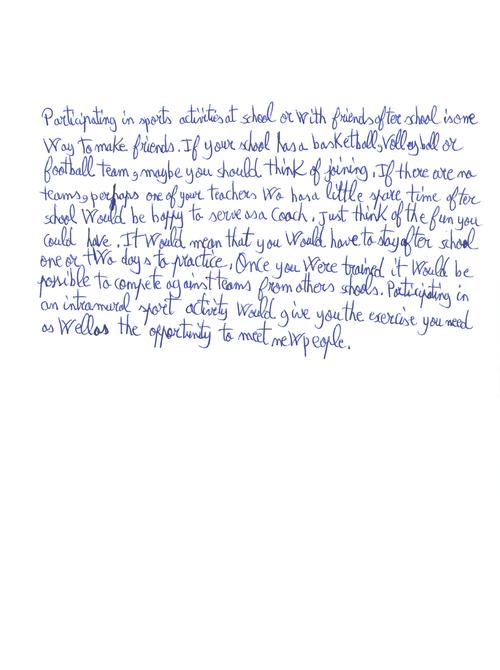 Participating in sports activities at school or with friends after school is one
Way to make friends. If your school has a basketball, Volleyball or
football team, maybe you should think of joining. If there are no
teams, perhaps one of your teachers Wo has a little spare time after
school Would be happy to serve as a Coach. Just think of the fun you
Could have. It Would mean that you Would have to stay after school
one or two days to practice. Once you Were trained it Would be
possible to compete against teams from others schools. Participating in
an intramural sport activity Would give you the exercise you need
as Well as the opportunity to meet neW people.